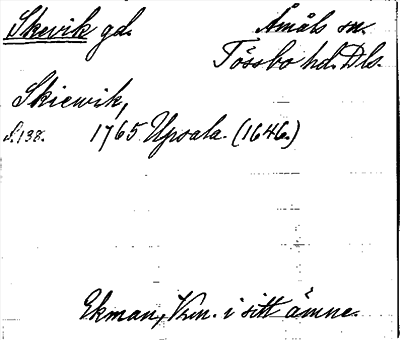 Skevik gd. Åmåls sn.
Tössbo hd. Dls.
Skiewik,
S. 138. 1765 Upsala. (1646.)
Ekman, Vm. i sitt ämne.